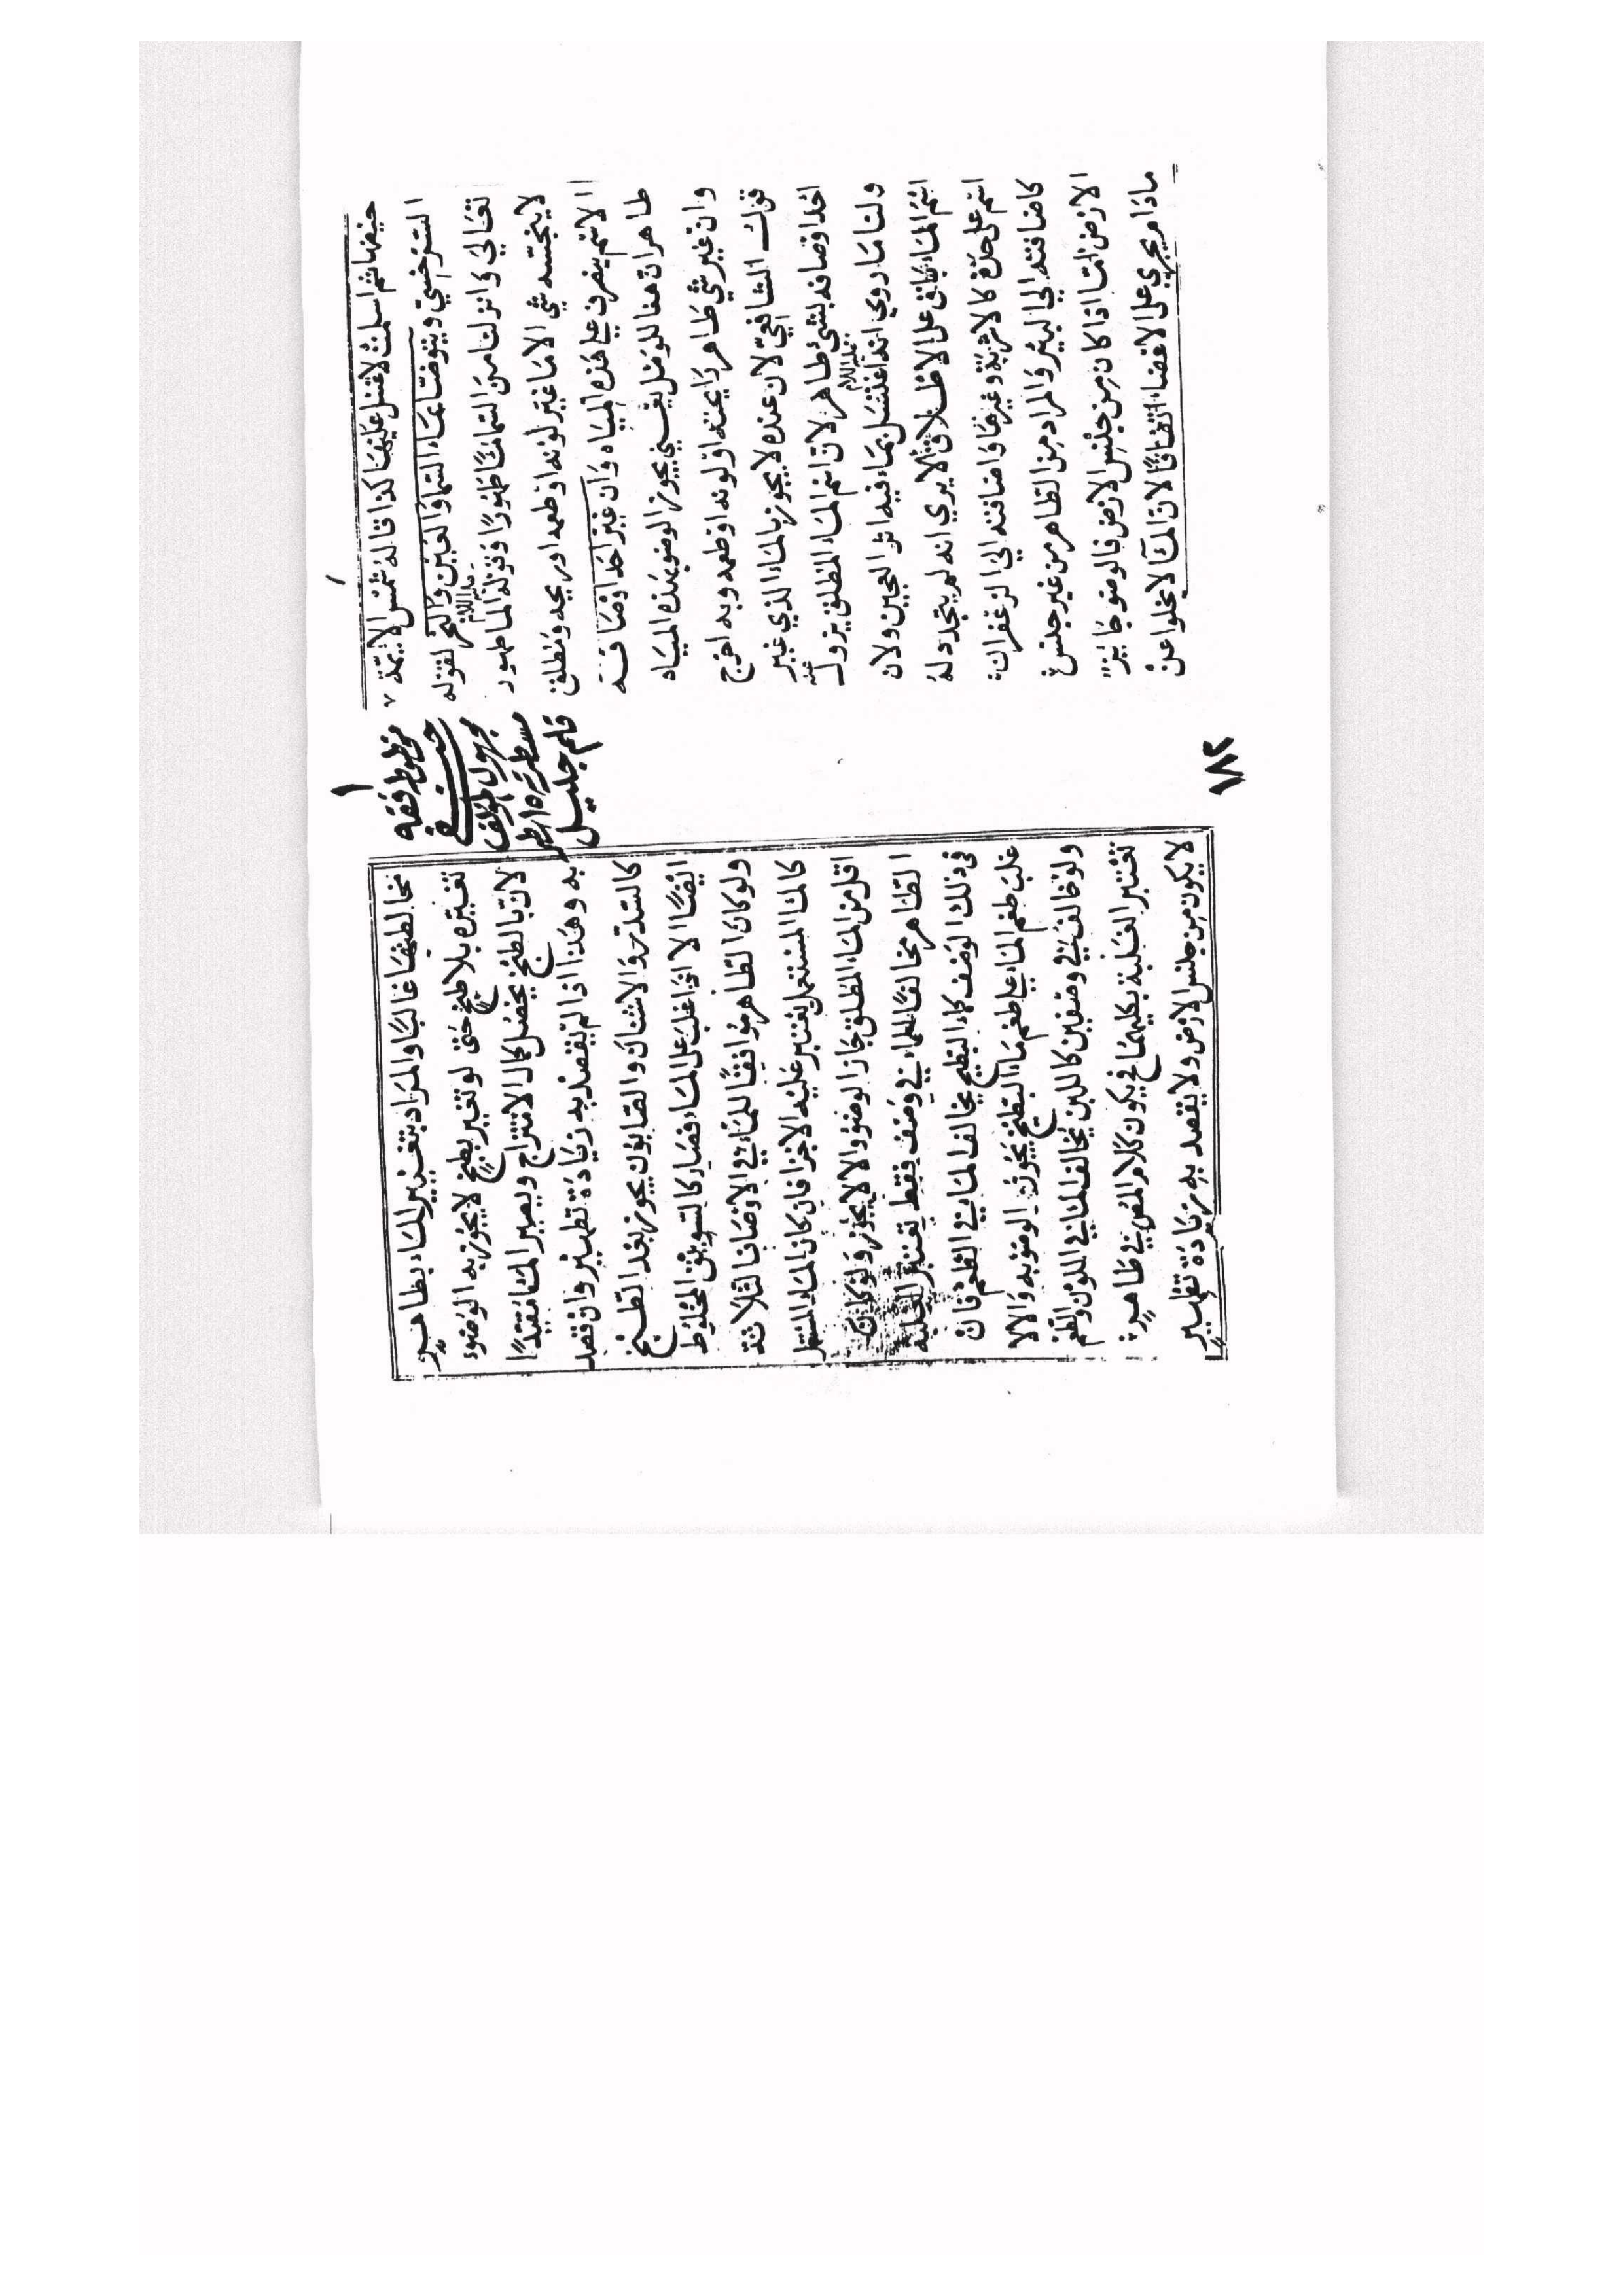 حيضها ثم اسلمت لاغسل عليها كذا قاله شمس الايمة
السرخسي ويتوضأ بماء السما والعين والبحر لقوله
تعالي وانزلنا من السما ماً طهورا وقوله عليه السلام الما طهور
لا ينجسه شي الا ما غير لونه او طعمه او ريحه ومطلق
الاسم ينصرف على هذه المياه وان غير احد اوصافه
طاهر ان هنا للوصل يعني يجوز الوضو بهذه المياه
وان غير شي طاهر رايحته او لونه او طعمه وبه اخرج
قول الشافعي لان عنده لا يجوز بالماء الذي غير
احد اوصافه بشي طاهر لان اسم الماء المطلق يزول عنه
ولنا ما روي انه عليه السلام اغتسل بماء فيه اثر العجين ولان
اسم الماء باق على الاطلاق الا يري انه لم يتجدد له
اسم على حدة كالاشربة وغيرها واضافته الي الزعفران
كاضافته الي البير والمراد من الطاهر من غير جنس
الارض اما اذا كان من جنس الارض فالوضو جايز
مادام يجري على الاعضا اتفاقا لان الما لا يخلوا عن
١
مخطوط فقه
حنفي
مجهول المؤلف
مسطرته ١٥ سطر
قلم جليل
١٨٢
مخالطتها غالبا والمراد بتغيير الماء بطاهر
تغييره بلا طبخ حتى لو تغير بطبخ لا يجوز به الوضوء
لان بالطبخ يحصل كمال الامتزاج ويصير الما مقيدا
به وهذا اذا لم يقصد به زيادة تطهير وان قصد
كالسدر والاشنان والصابون يجوز بعد الطبخ
ايضا الا اذا غلب على الماء فصار كالسويق المخلوط
ولو كان الطاهر موافقا للماء في الاوصاف الثلاثة
كالما المستعمل يعتبر عليه الاجزا فان كان الماء المستعمل
اقل من الماء المطلق جاز الوضوء والا لا يجوز ولو كان
الطاهر مخالفا للماء في وصف فقط تعتبر الغلبة
في ذلك الوصف كماء البطيخ يخالف الما في الطعم فان
غلب طعم الماء على طعم ماء البطيخ يجوز الوضو به والا لا
ولو خالف في وصفين كاللبن يخالف الما في اللون والطعم
تعتبر الغلبة بكليهما فيكون كلام المص في طاهر
لا يكون من جنس الارض ولا يقصد به زيادة تطهير